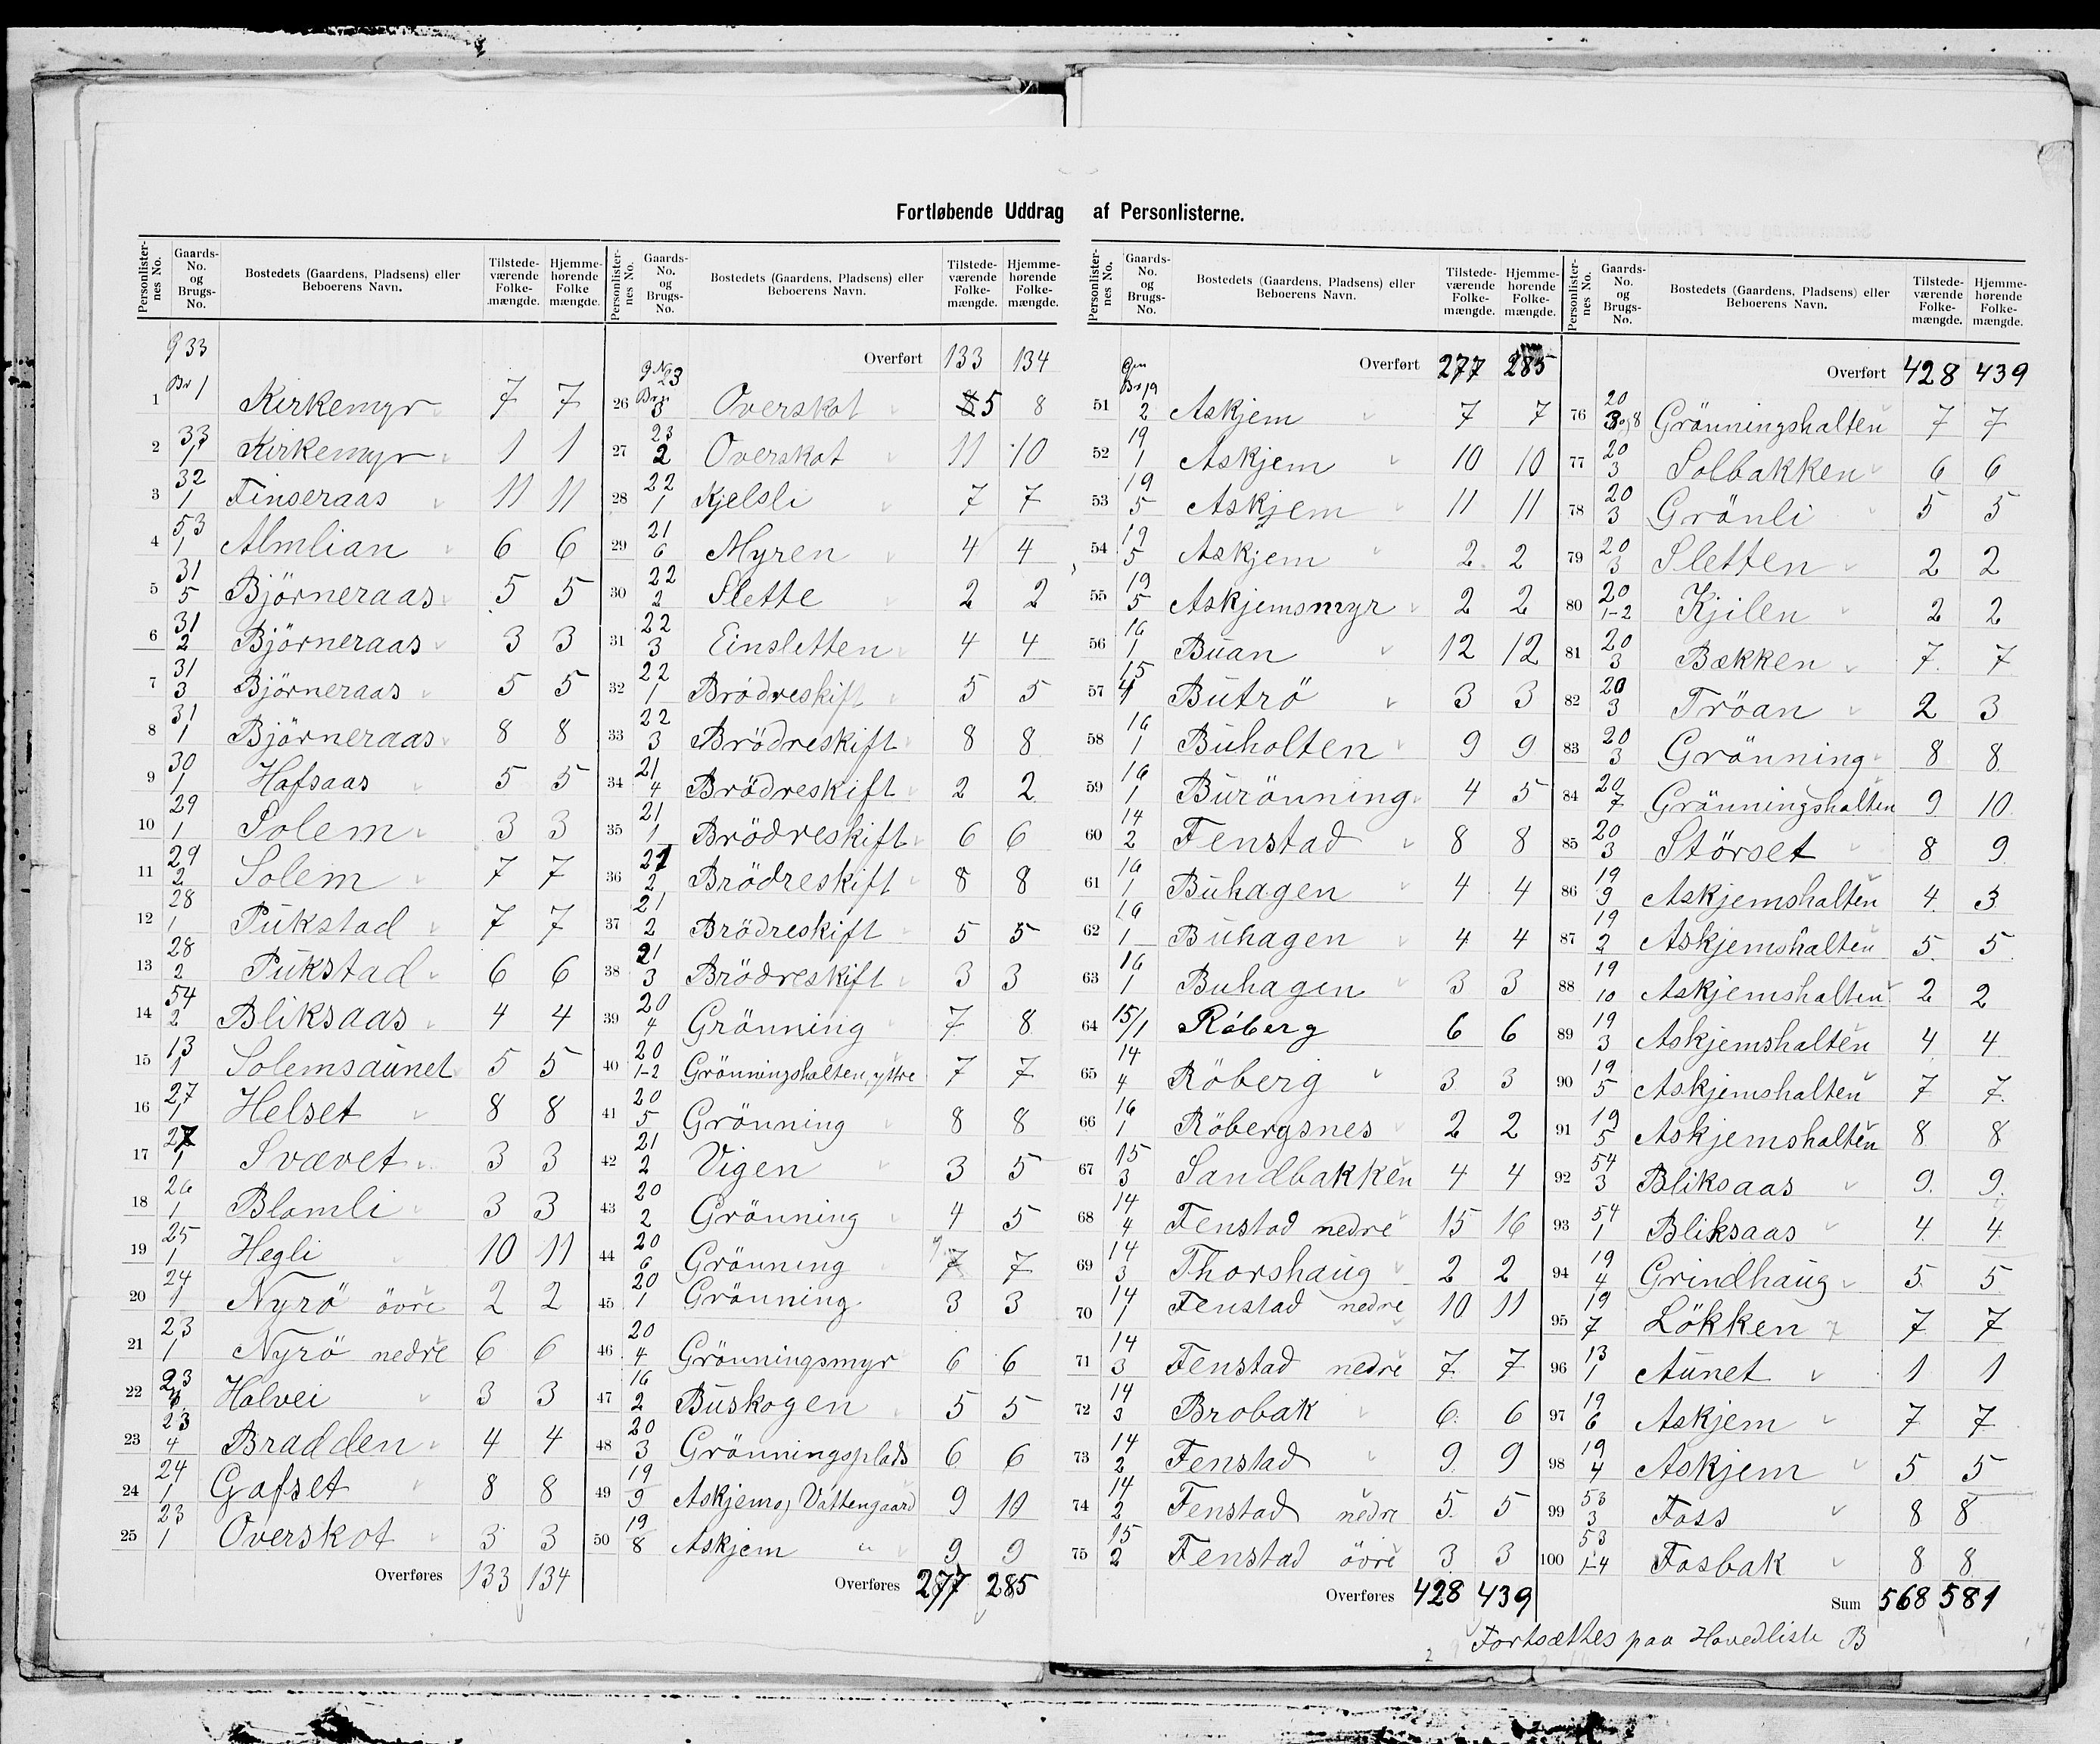 Fortløbende Uddrag af Personlisterne.
Personlister-nes No. Gaards-No. og Brugs-No. Bostedets (Gaardens, Pladsens) eller Beboerens Navn. Tilstede-værende Folke-mængde. Hjemme-hørende Folke mængde.
g 33
1 Br 1 Kirkemyr 7 7
2 33 1 Kirkemyr 1 1
3 32 1 Finseraas 11 11
4 53 1 Almlian 6 6
5 31 5 Björneraas 5 5
6 31 2 Björneraas 3 3
7 31 3 Björneraas 5 5
8 31 1 Björneraas 8 8
9 30 1 Hafsaas 5 5
10 29 1 Solem 3 3
11 29 2 Solem 7 7
12 28 1 Pukstad 7 7
13 28 2 Pukstad 6 6
14 54 2 Bliksaas 4 4
15 13 1 Solemsaunet 5 5
16 27 1 Helset 8 8
17 27 1 Svævet 3 3
18 26 1 Blomli 3 3
19 25 1 Hegli 10 11
20 24 1 Nyrö övre 2 2
21 23 1 Nyrö nedre 6 6
22 23 Holvei 3 3
23 23 4 Bradden 4 4
24 24 1 Gafset 8 8
25 23 1 Overskot 3 3
Overføres 133 134
Personlister-nes No. Gaards-No. og Brugs-No. Bostedets (Gaardens, Pladsens) eller Beboerens Navn. Tilstede-værende Folke-mængde. Hjemme-hørende Folke-mængde.
Overført 133 134
26 g Nr 23 Br nr 3 Overskot 5 8
27 23 2 Overskot 11 10
28 22 1 Kjelsli 7 7
29 21 6 Myren 4 4
30 22 2 Slette 2 2
31 22 3 Einsletten 4 4
32 22 1 Brödreskift 5 5
33 22 3 Brödreskift 8 8
34 21 4 Brödreskift 2 2
35 21 1 Brödreskift 6 6
36 21 2 Brödreskift 8 8
37 21 2 Brödreskift 5 5
38 21 3 Brödreskift 3 3
39 20 4 Grönning 7 8
40 20 1-2 Grönningshalten, yttre 7 7
41 20 5 Grönning 8 8
42 21 2 Vigen 3 5
43 20 2 Grönning 4 5
44 20 6 Grönning 7 7
45 20 1 Grönning 3 3
46 20 4 Grönningsmyr 6 6
47 16 2 Buskogen 5 5
48 20 3 Grönningsplads 6 6
49 19 9 Askjem og Vattengaard 9 10
50 19 8 Askjem " 9 9
Overføres 277 285
Personlister-nes No. Gaards-No. og Brugs-No. Bostedets (Gaardens, Pladsens) eller Beboerens Navn. Tilstede-værende Folke-mængde. Hjemme-hørende Folke-mængde.
Overført 277 285
51 19 2 Askjem 7 7
52 19 1 Askjem 10 10
53 19 5 Askjem 11 11
54 19 5 Askjem 2 2
55 19 5 Askjemsmyr 2 2
56 16 1 Buan 12 12
57 15 4 Butrö 3 3
58 16 1 Buholten 9 9
59 16 1 Burönning 4 5
60 14 2 Fenstad 8 8
61 16 1 Buhagen 4 4
62 16 1 Buhagen 4 4
63 16 1 Buhagen 3 3
64 15/1 Röberg 6 6
65 14 4 Röberg 3 3
66 16 1 Röbergsnes 2 2
67 15 3 Sandbakken 4 4
68 14 4 Fenstad nedre 15 16
69 14 3 Thorshaug 2 2
70 14 1 Fenstad nedre 10 11
71 14 3 Fenstad nedre 7 7
72 14 3 Brobak 6 6
73 14 2 Fenstad 9 9
74 14 2 Fenstad nedre 5 5
75 15 2 Fenstad övre 3 3
Overføres 428 439
Personlister-nes No. Gaards-No. og Brugs-No. Bostedets (Gaardens, Pladsens) eller Beboerens Navn. Tilstede-værende Folke-mængde. Hjemme-hørende Folke-mængde.
Overført 428 439
76 20 3 og 8 Grönningshalten 7 7
77 20 3 Solbakken 6 6
78 20 3 Grönli 5 5
79 20 3 Sletten 2 2
80 20 1-2 Kjilen 2 2
81 20 3 Bækken 7 7
82 20 3 Tröan 2 3
83 20 3 Grönning 8 8
84 20 7 Grönningshalten 9 10
85 20 3 Störset 8 9
86 19 9 Askjemshalten 4 3
87 19 2 Askjemshalten 5 5
88 19 10 Askjemshalten 2 2
89 19 3 Askjemshalten 4 4
90 19 5 Askjemshalten 7 7
91 19 5 Askjemshalten 8 8
92 54 3 Bliksaas 9 9
93 54 1 Bliksaas 4 4
94 19 4 Grindhaug 5 5
95 19 7 Lökken 7 7
96 13 1 Aunet 1 1
97 19 6 Askjem 7 7
98 19 4 Askjem 5 5
99 53 3 Foss 8 8
100 53 1-4 Fosbak 8 8
Sum 568 581
Fortsættes paa Hovedliste B